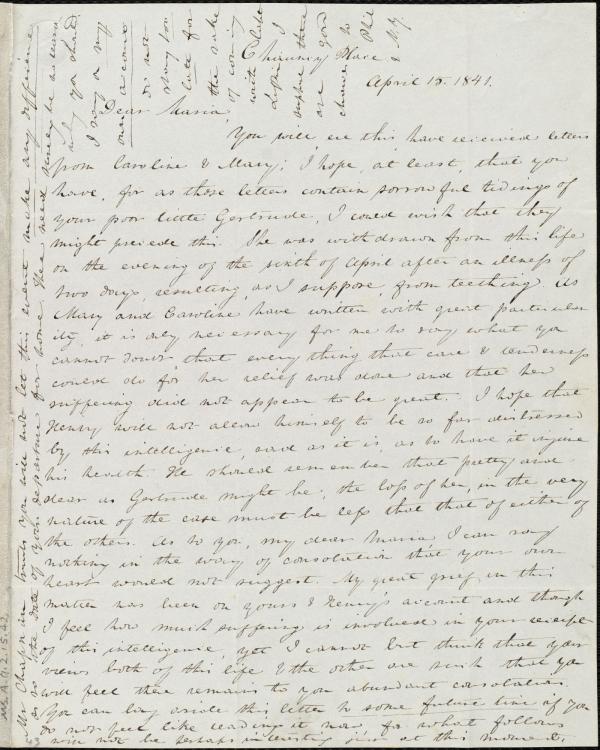 Chauncy Place
April 15. 1841.
Dear Maria,
You will, ere this, have received letters
from Caroline & Mary; I hope, at least, that you
have, for as those letters contain sorrowful tidings of
your poor little Gertrude, I could wish that they
might precede this. She was withdrawn from this life
on the evening of the sixth of April after an illness of
two days, resulting, as I suppose, from teething. As
Mary and Caroline have written with great particular
ity, it is only necessary for me to say what you
cannot doubt, that everything that care & tenderness
could do for her relief was done and that her
suffering did not appear to be great. I hope that
Henry will not allow himself to be so far distressed
by this intelligence, sad as it is, as to have it injure
his health. He should remember that pretty and
dear as Gertrude might be, the loss of her, in the very
nature of the case must be less that that of either of
the others. As to you, my dear Maria, I can say
nothing in the way of consolation that your own
heart would not suggest. My great grief in this
matter has been on yours & Henry's account and though
I feel how much suffering is involved in your receipt
of this intelligence, yet I cannot but think that your
views both of this life & the other are such that you
will feel there remains to you abundant consolation.
You can lay aside this letter to some future time if you
do not feel like reading it now for what follows
will not be perhaps interesting just at this moment.
Mr Chapman much you will not let this event make any difference
as to the date of your departure for home. Thee need
not be as ward
why you should.
I say a my
own a come
do not
stay too
late for
the sake
of coming
with
I
suppose there
are good
chance to
Phil
& N.Y.